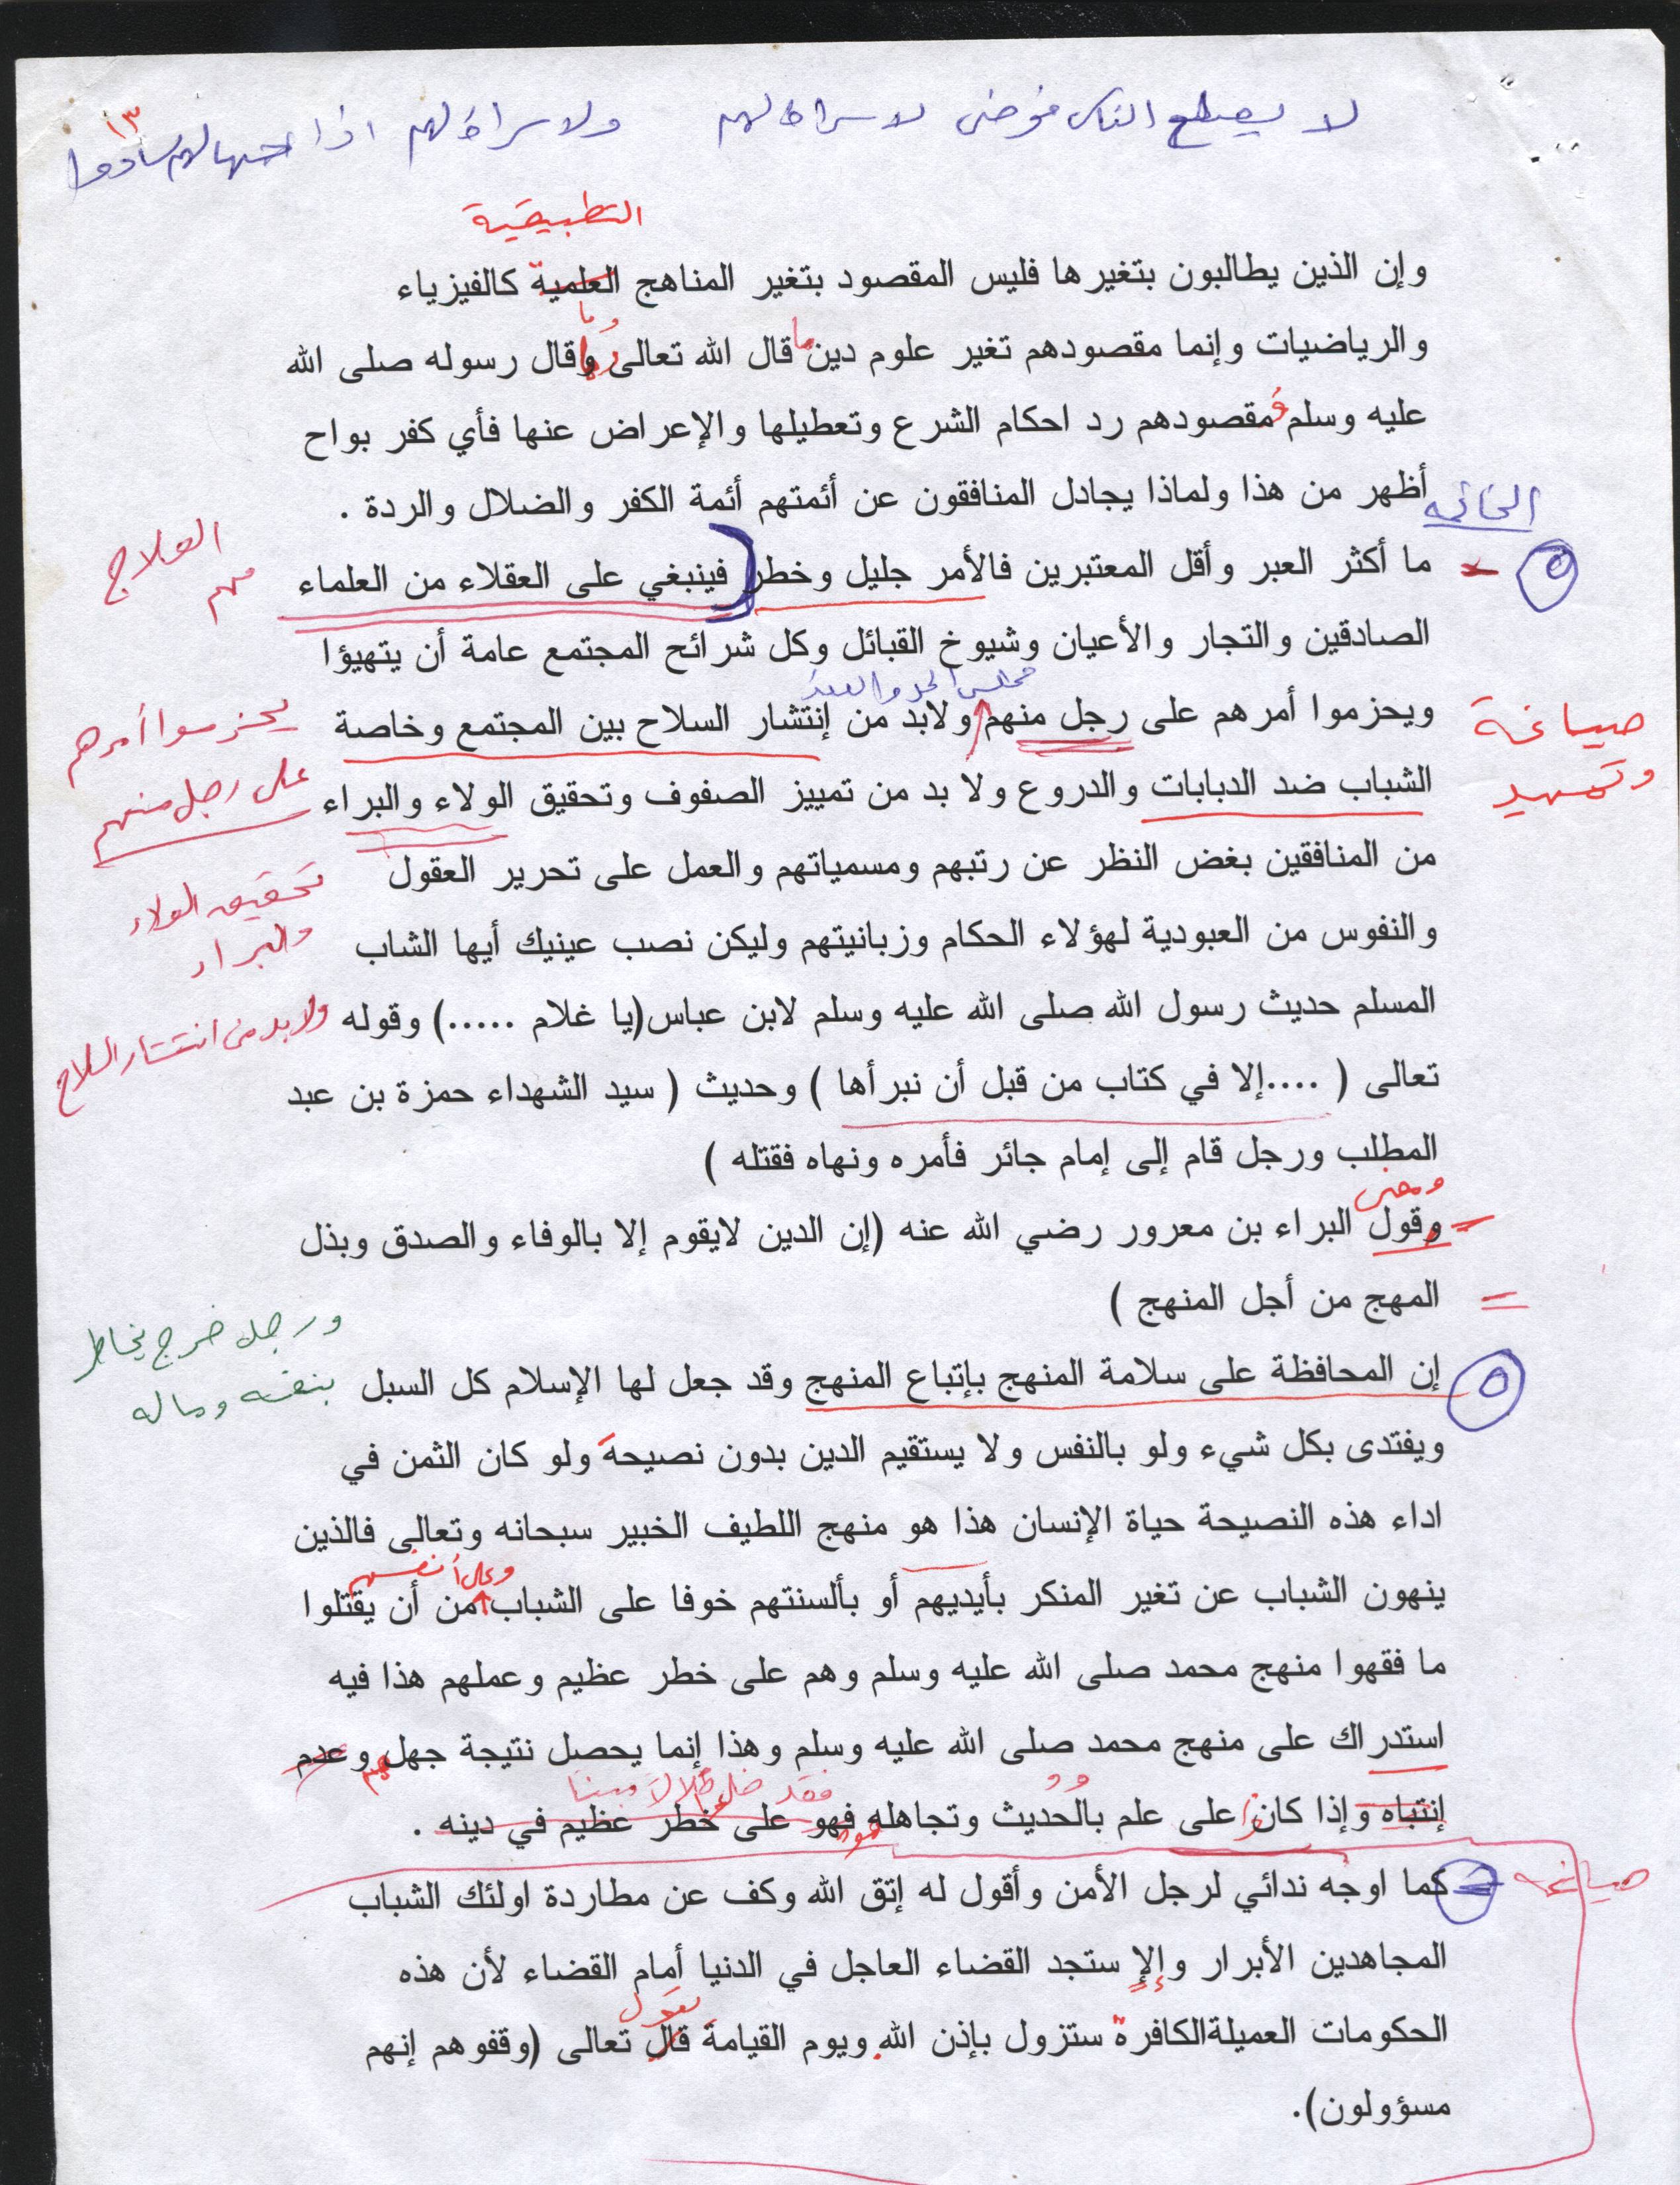 لا يصلح الناس فوضى لا سراة لهم ولا سراة لهم اذا جهالهم سادوا
١٣
التطبيقية
وإن الذين يطالبون بتغيرها فليس المقصود بتغير المناهج العلمية كالفيزياء
وما
والرياضيات وإنما مقصودهم تغير علوم دين ما قال الله تعالى وقال رسوله صلى الله
عليه وسلم ومقصودهم رد احكام الشرع وتعطيلها والإعراض عنها فأي كفر بواح
أظهر من هذا ولماذا يجادل المنافقون عن أئمتهم أئمة الكفر والضلال والردة .
الخاتمه
العلاج
مهم
ما أكثر العبر وأقل المعتبرين فالأمر جليل وخطر (فينبغي على العقلاء من العلماء
الصادقين والتجار والأعيان وشيوخ القبائل وكل شرائح المجتمع عامة أن يتهيؤا
مجالس الحل والعقد
ويحزموا أمرهم على رجل منهم ولابد من إنتشار السلاح بين المجتمع وخاصة
صياغة
وتمهيد
يحزموا أمرهم
على رجل منهم
الشباب ضد الدبابات والدروع ولا بد من تمييز الصفوف وتحقيق الولاء والبراء
من المنافقين بغض النظر عن رتبهم ومسمياتهم والعمل على تحرير العقول
تحقيق الولاء
والبراء
والنفوس من العبودية لهؤلاء الحكام وزبانيتهم وليكن نصب عينيك أيها الشاب
المسلم حديث رسول الله صلى الله عليه وسلم لابن عباس(يا غلام .....) وقوله
ولا بد من انتشار السلاح
تعالى ( ....إلا في كتاب من قبل أن نبرأها ) وحديث ( سيد الشهداء حمزة بن عبد
المطلب ورجل قام إلى إمام جائر فأمره ونهاه فقتله )
ومعنى
وقول البراء بن معرور رضي الله عنه (إن الدين لايقوم إلا بالوفاء والصدق وبذل
المهج من أجل المنهج )
ورجل خرج يخاطر
بنفسه وماله
إن المحافظة على سلامة المنهج بإتباع المنهج وقد جعل لها الإسلام كل السبل
ويفتدى بكل شيء ولو بالنفس ولا يستقيم الدين بدون نصيحة ولو كان الثمن في
اداء هذه النصيحة حياة الإنسان هذا هو منهج اللطيف الخبير سبحانه وتعالى فالذين
وعلى أنفسهم
ينهون الشباب عن تغير المنكر بأيديهم أو بألسنتهم خوفا على الشباب من أن يقتلوا
ما فقهوا منهج محمد صلى الله عليه وسلم وهم على خطر عظيم وعملهم هذا فيه
استدراك على منهج محمد صلى الله عليه وسلم وهذا إنما يحصل نتيجة جهلهم وعدم
فقد ضل ضلالاً مبينا
إنتباه وإذا كانوا على علم بالحديث وتجاهلوه فهو على خطر عظيم في دينه .
صياغة
كما اوجه ندائي لرجل الأمن وأقول له إتق الله وكف عن مطاردة اولئك الشباب
المجاهدين الأبرار وإلا ستجد القضاء العاجل في الدنيا أمام القضاء لأن هذه
يقول
الحكومات العميلةالكافرة ستزول بإذن الله. ويوم القيامة قال تعالى (وقفوهم إنهم
مسؤولون).